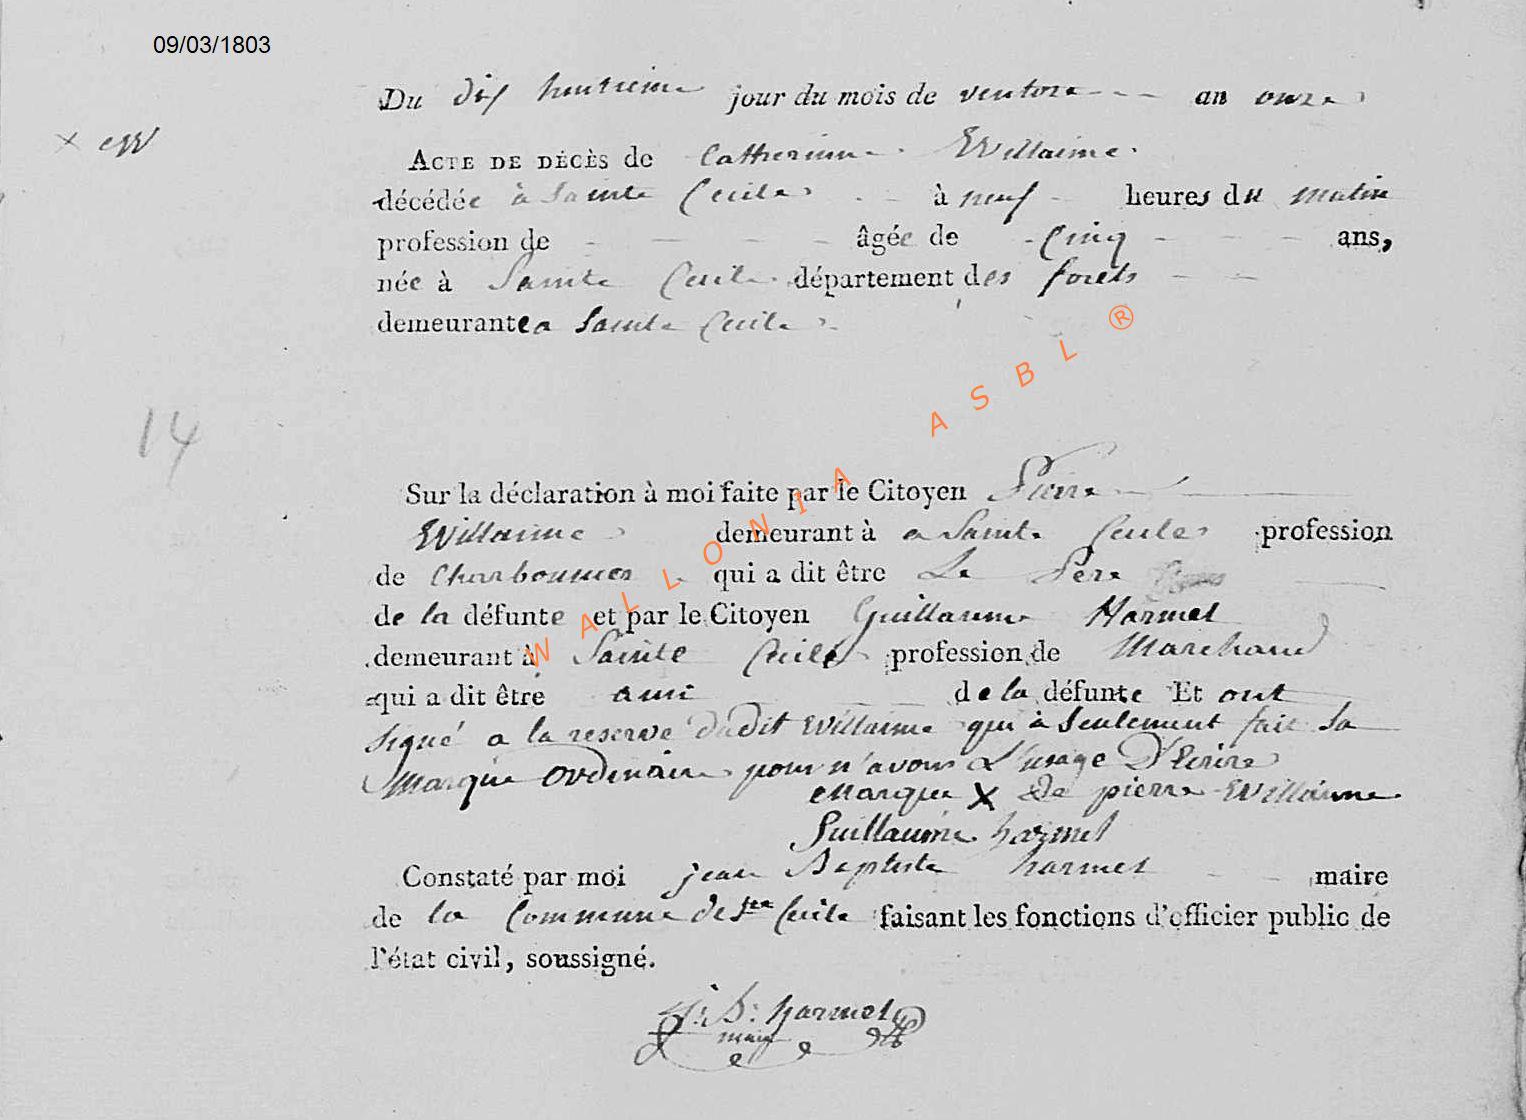 09/03/1803
Du dix huitieme jour du mois de ventose an onze
x CW
ACTE DE DÉCÈS de Catherinne Willaime
décédée à Sainte Cecile à neuf heures du matin
profession de âgée de Cinq ans,
née à Sainte Cecile département des forets
demeurante a Sainte Cecile
WALLONIA ASBL ®
14
Sur la déclaration à moi faite par le Citoyen Pierre
Willaime demeurant à a Sainte Cecile profession
de Charbonnier qui a dit être Le Pere
de la défunte et par le Citoyen Guillaume Harmel
demeurant à Sainte Cecile profession de Marchand
qui a dit être ami de la défunte Et ont
signé a la reserve dudit Willaime qui à seulement fait sa
Marque ordinaire pour n'avoir L'usage D'Ecrire
Marque X De pierre Willaime
Guillaume harmel
Constaté par moi jean Baptiste harmel maire
de la Commune de Ste Cecile faisant les fonctions d'officier public de
l'état civil, soussigné.
J: B: harmel
maire